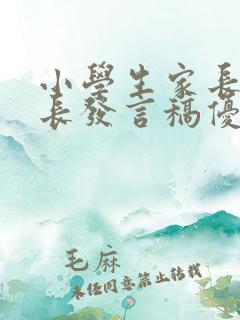 小學生家長
長發言稿優
毛麻
未经同意禁止转载